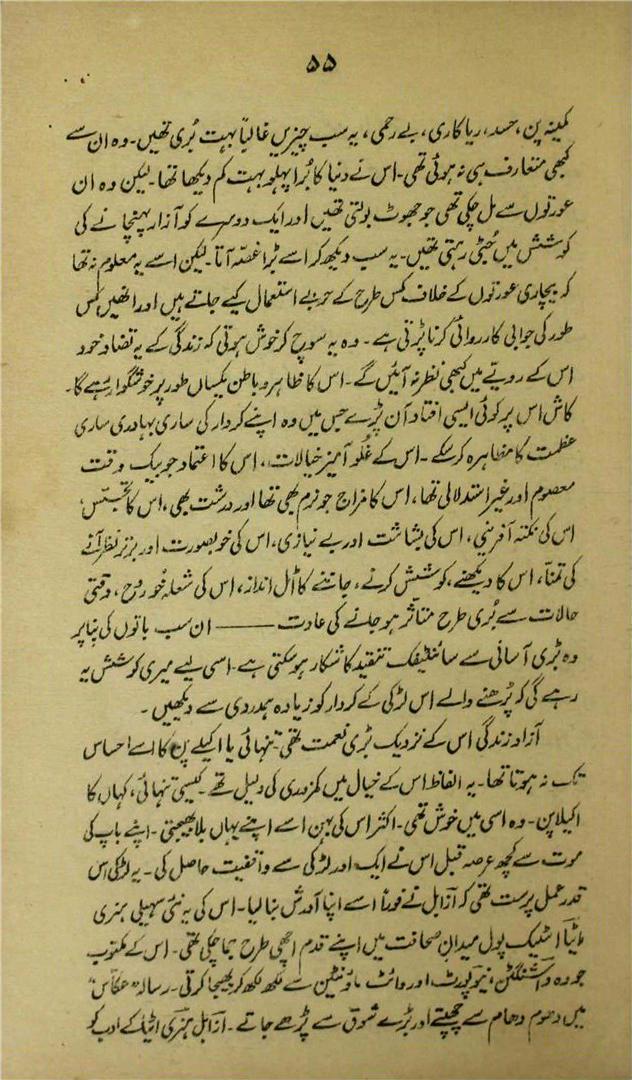 ۵۵
کمینہ پن، حسد، ریاکاری، بے رحمی، یہ سب چیزیں غالباً بہت بُری تھیں۔ وہ ان سے
کبھی متعارف ہی نہ ہوئی تھی۔ اس نے دنیا کا بُرا پہلو بہت کم دیکھا تھا۔ لیکن وہ ان
عورتوں سے مل چکی تھی جو جھوٹ بولتی تھیں اور ایک دوسرے کو آزار پہنچانے کی
کوشش میں جُٹی رہتی تھیں۔ یہ سب دیکھ کر اسے بڑا غصّہ آتا۔ لیکن اسے یہ معلوم نہ تھا
کہ بیچاری عورتوں کے خلاف کس طرح کے حربے استعمال کیے جاتے ہیں اور انھیں کس
طور کی جوابی کارروائی کرنا پڑتی ہے۔ وہ یہ سوچ کر خوش ہوتی کہ زندگی کے یہ تضاد خود
اس کے رویّے میں کبھی نظر نہ آئیں گے۔ اس کا ظاہر و باطن یکساں طور پر خوشگوار رہے گا۔
کاش اس پر کوئی ایسی افتاد آن پڑے جس میں وہ اپنے کردار کی ساری بہادری ساری
عظمت کا مظاہرہ کر سکے۔ اس کے غُلو آمیز خیالات، اس کا اعتماد جو بیک وقت
معصوم اور غیر استدلالی تھا، اس کا مزاج جو نرم بھی تھا اور درشت بھی، اس کا تجسّس،
اس کی نکتہ آفرینی، اس کی بشاشت اور بے نیازی، اس کی خوبصورت اور برتر نظر آنے
کی تمنّا، اس کا دیکھنے، کوشش کرنے، جاننے کا اٹل انداز، اس کی شعلہ خُو روح، وقتی
حالات سے بُری طرح متاثر ہو جانے کی عادت ——— ان سب باتوں کی بنا پر
وہ بڑی آسانی سے سائنٹیفک تنقید کا شکار ہو سکتی ہے۔ اسی لیے میری کوشش یہ
رہے گی کہ پڑھنے والے اس لڑکی کے کردار کو زیادہ ہمدردی سے دیکھیں۔
آزاد زندگی اس کے نزدیک بڑی نعمت تھی۔ تنہائی یا اکیلے پن کا اسے احساس
تک نہ ہوتا تھا۔ یہ الفاظ اس کے خیال میں کمزوری کی دلیل تھے۔ کیسی تنہائی، کہاں کا
اکیلا پن۔ وہ اسی میں خوش تھی۔ اکثر اس کی بہن اسے اپنے یہاں بلا بھیجتی۔ اپنے باپ کی
موت سے کچھ عرصہ قبل اس نے ایک اور لڑکی سے واقفیت حاصل کی۔ یہ لڑکی اس
قدر عمل پرست تھی کہ آزابل نے فوراً اسے اپنا آدرش بنا لیا۔ اس کی یہ نئی سہیلی ہنری
ایٹا اسٹیک پول میدانِ صحافت میں اپنے قدم اچھی طرح جما چکی تھی۔ اس کے مکتوب
جو وہ واشنگٹن، نیو پورٹ اور وائٹ ماؤنٹین سے لکھ لکھ کر بھیجا کرتی۔ رسالہ "عکاس"
میں دھوم دھام سے چھپتے اور بڑے شوق سے پڑھے جاتے۔ ازابل ہنری ایٹا کے ادب کو